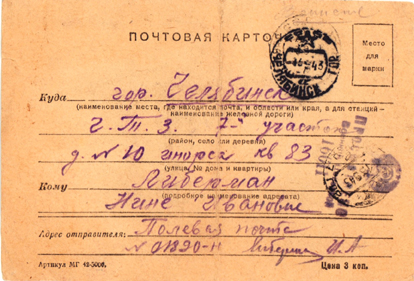 ПОЧТОВАЯ КАРТОЧ
Место
для
марки
ЧЕЛЯБИНСК
Куда гор. Челябинск
(наименование места, где находится почта, и области или края, а для станций -
наименование железной дороги)
Ч. Т. З. 7й участок
(район, село или деревня)
д. № 10 кв 83
(улица, № дома и квартиры)
Кому Либерман
(подробное наименование адресата)
Нине Ивановне
Адрес отправителя: Полевая почта
№ 01890-н И. А
Артикул МГ 42-5006.
Цена 3 коп.